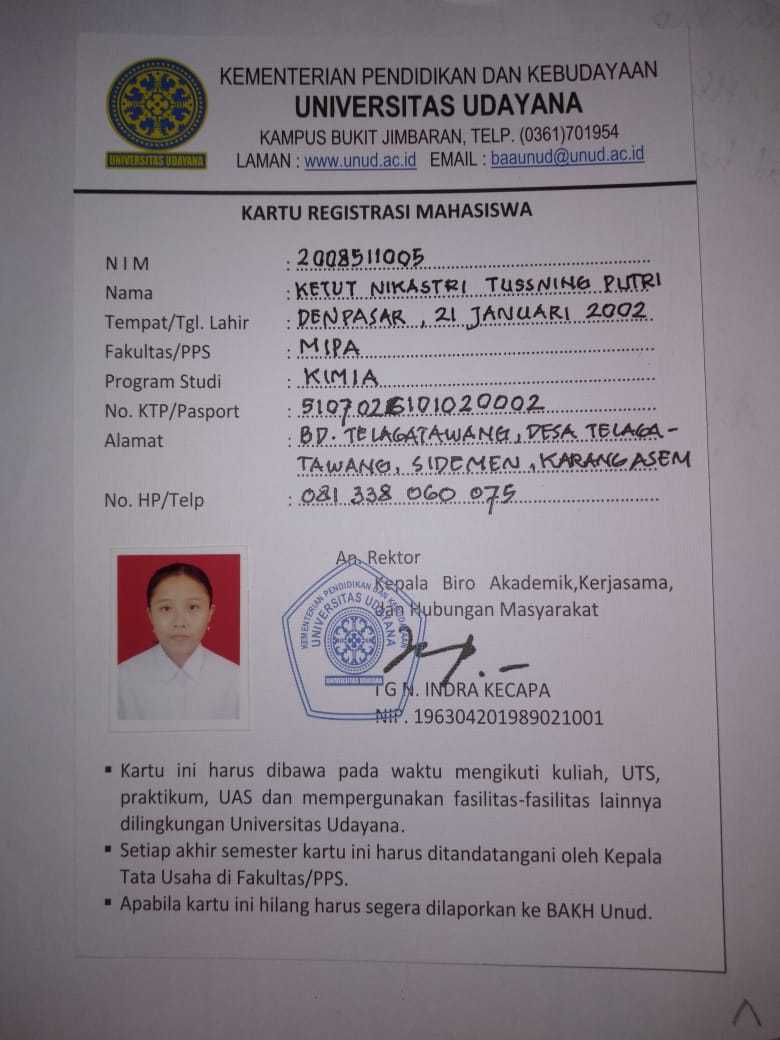 KEMENTERIAN PENDIDIKAN DAN KEBUDAYAAN
UNIVERSITAS UDAYANA
KAMPUS BUKIT JIMBARAN, TELP. (0361)701954
LAMAN : www.unud.ac.id EMAIL : baaunud@unud.ac.id
UNIVERSITAS UDAYANA
KARTU REGISTRASI MAHASISWA
N I M : 2008511005
Nama : KETUT NIKASTRI TUSSNING PUTRI
Tempat/Tgl. Lahir : DENPASAR, 21 JANUARI 2002
Fakultas/PPS : MIPA
Program Studi : KIMIA
No. KTP/Pasport : 5107026101020002
Alamat : BD. TELAGATAWANG, DESA TELAGA-
TAWANG, SIDEMEN, KARANGASEM
No. HP/Telp : 081 338 060 075
An. Rektor
Kepala Biro Akademik,Kerjasama,
dan Hubungan Masyarakat
KEMENTERIAN PENDIDIKAN DAN KEBUDAYAAN
UNIVERSITAS UDAYANA
UNIVERSITAS UDAYANA
I G N. INDRA KECAPA
NIP. 196304201989021001
▪ Kartu ini harus dibawa pada waktu mengikuti kuliah, UTS,
praktikum, UAS dan mempergunakan fasilitas-fasilitas lainnya
dilingkungan Universitas Udayana.
▪ Setiap akhir semester kartu ini harus ditandatangani oleh Kepala
Tata Usaha di Fakultas/PPS.
▪ Apabila kartu ini hilang harus segera dilaporkan ke BAKH Unud.